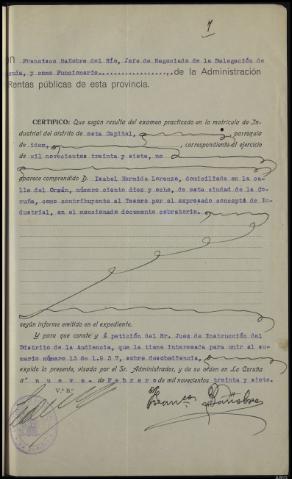 1
Francisco Bañobre del Río, Jefe de Negociado de la Delegación de
y como Funcionario de la Administración
Rentas públicas de esta provincia.
CERTIFICO: Que según resulta del examen practicado en la matrícula de In-
dustrial del distrito de esta Capital, parroquia
de idem, correspondiente al ejercicio
de mil novecientos treinta y siete, no
aparece comprendido D. Isabel Hermida Lorenzo, domiciliada en la ca-
lle del Orzán, número ciento diez y ocho, de esta ciudad de la Co-
ruña, como contribuyente al Tesoro por el expresado concepto de In-
dustrial, en el mencionado documento cobratorio.
según informes emitido en el expediente.
Y para que conste y á petición del Sr. Juez de Instrucción del
Distrito de la Audiencia, que la tiene interesada para unir al su-
mario número 13 de 1.937, sobre desobediencia,
expido la presente, visada por el Sr. Administrador, y de su orden en La Coruña
á nueve de Febrero de mil novecientos treinta y siete.
V.º B.º
Franco Bañobre